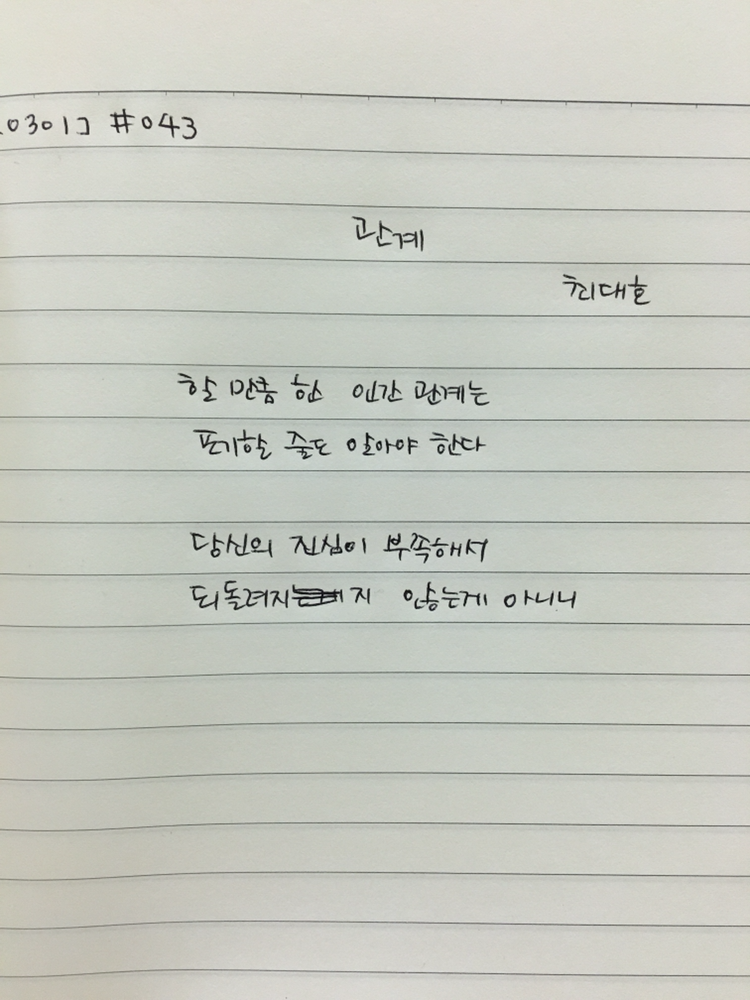 0301] #043
관계
최대호
할 만큼 한 인간 관계는
포기할 줄도 알아야 한다
당신의 진심이 부족해서
되돌려지지 않는게 아니니